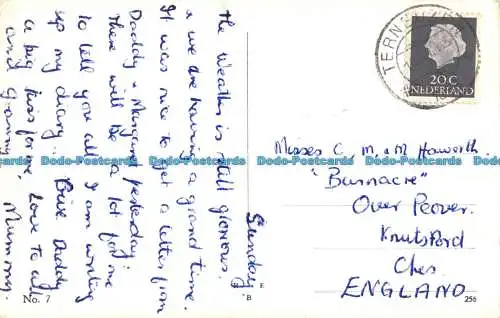 Sunday
The Weather is still glorious
& we are having a grand time.
It was nice to get a letter from
Daddy & Margaret yesterday
There will be a lot for me
to tell you all. I am writing
up my diary. Give Daddy
a big kiss for me, Love to all
and Granny. Mummy.
No. 7
B E
B
256
TERNEUZEN
20 C
NEDERLAND
Misses C. M. & M Haworth
"Burnacre"
Over Peover.
Knutsford
Ches
ENGLAND
Dodo-Postcards Dodo-Postcards Dodo-Postcards Dodo-Postcards Dodo-Postcards